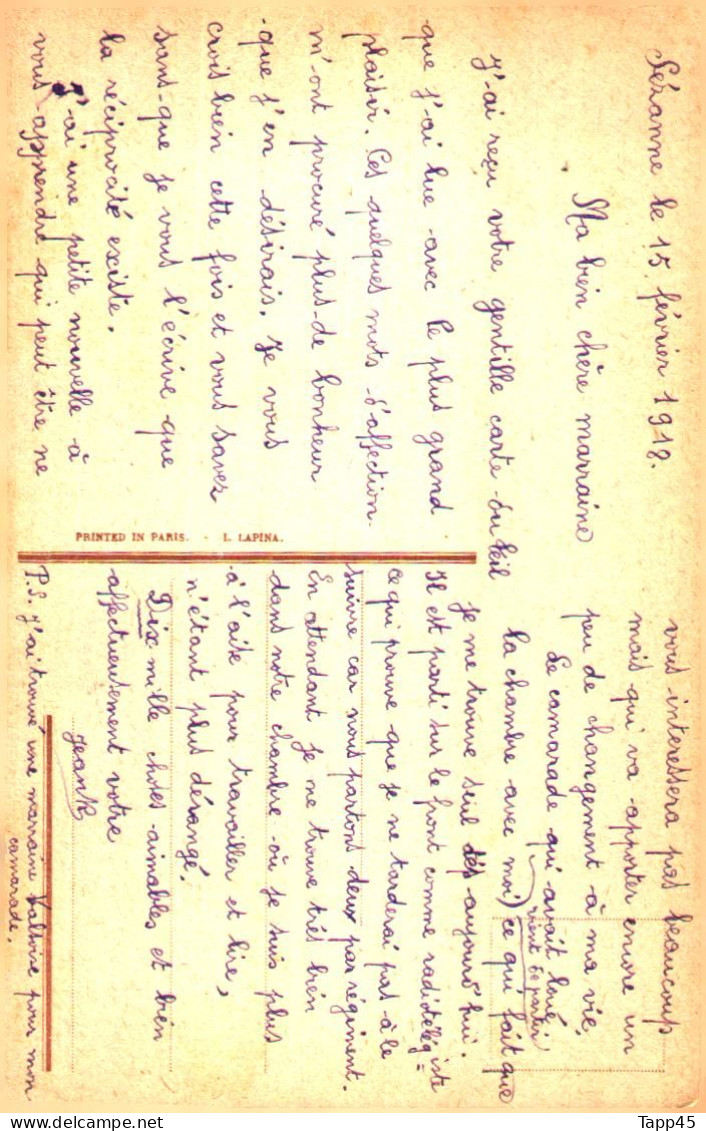 Sézanne le 15 février 1918.
Ma bien chère marraine
J'ai reçu votre gentille carte du
que j'ai lue avec le plus grand
plaisir. Ces quelques mots d'affection
m'ont procuré plus de bonheur
que j'en désirais. Je vous
crois bien cette fois et vous savez
sans que je vous l'écrive que
la réciprocité existe.
J'ai une petite nouvelle à
vous apprendre qui peut être ne
PRINTED IN PARIS. - L. LAPINA.
vous interessera pas beaucoup
mais qui va apporter encore un
peu de changement à ma vie.
Le camarade qui avait loué
la chambre avec moi vient de partir ce qui fait que
je me trouve seul dès aujourd'hui.
Il est parti sur le front comme radiotélégiste
ce qui prouve que je ne tarderai pas à le
suivre car nous partons deux par régiment.
En attendant je me trouve très bien
dans notre chambre où je suis plus
à l'aise pour travailler et lire,
n'étant plus dérangé.
Dix mille choses aimables et bien
affectueusement votre
JeanR
P.S. J'ai trouvé une marraine pour mon
camarade.
Tapp45